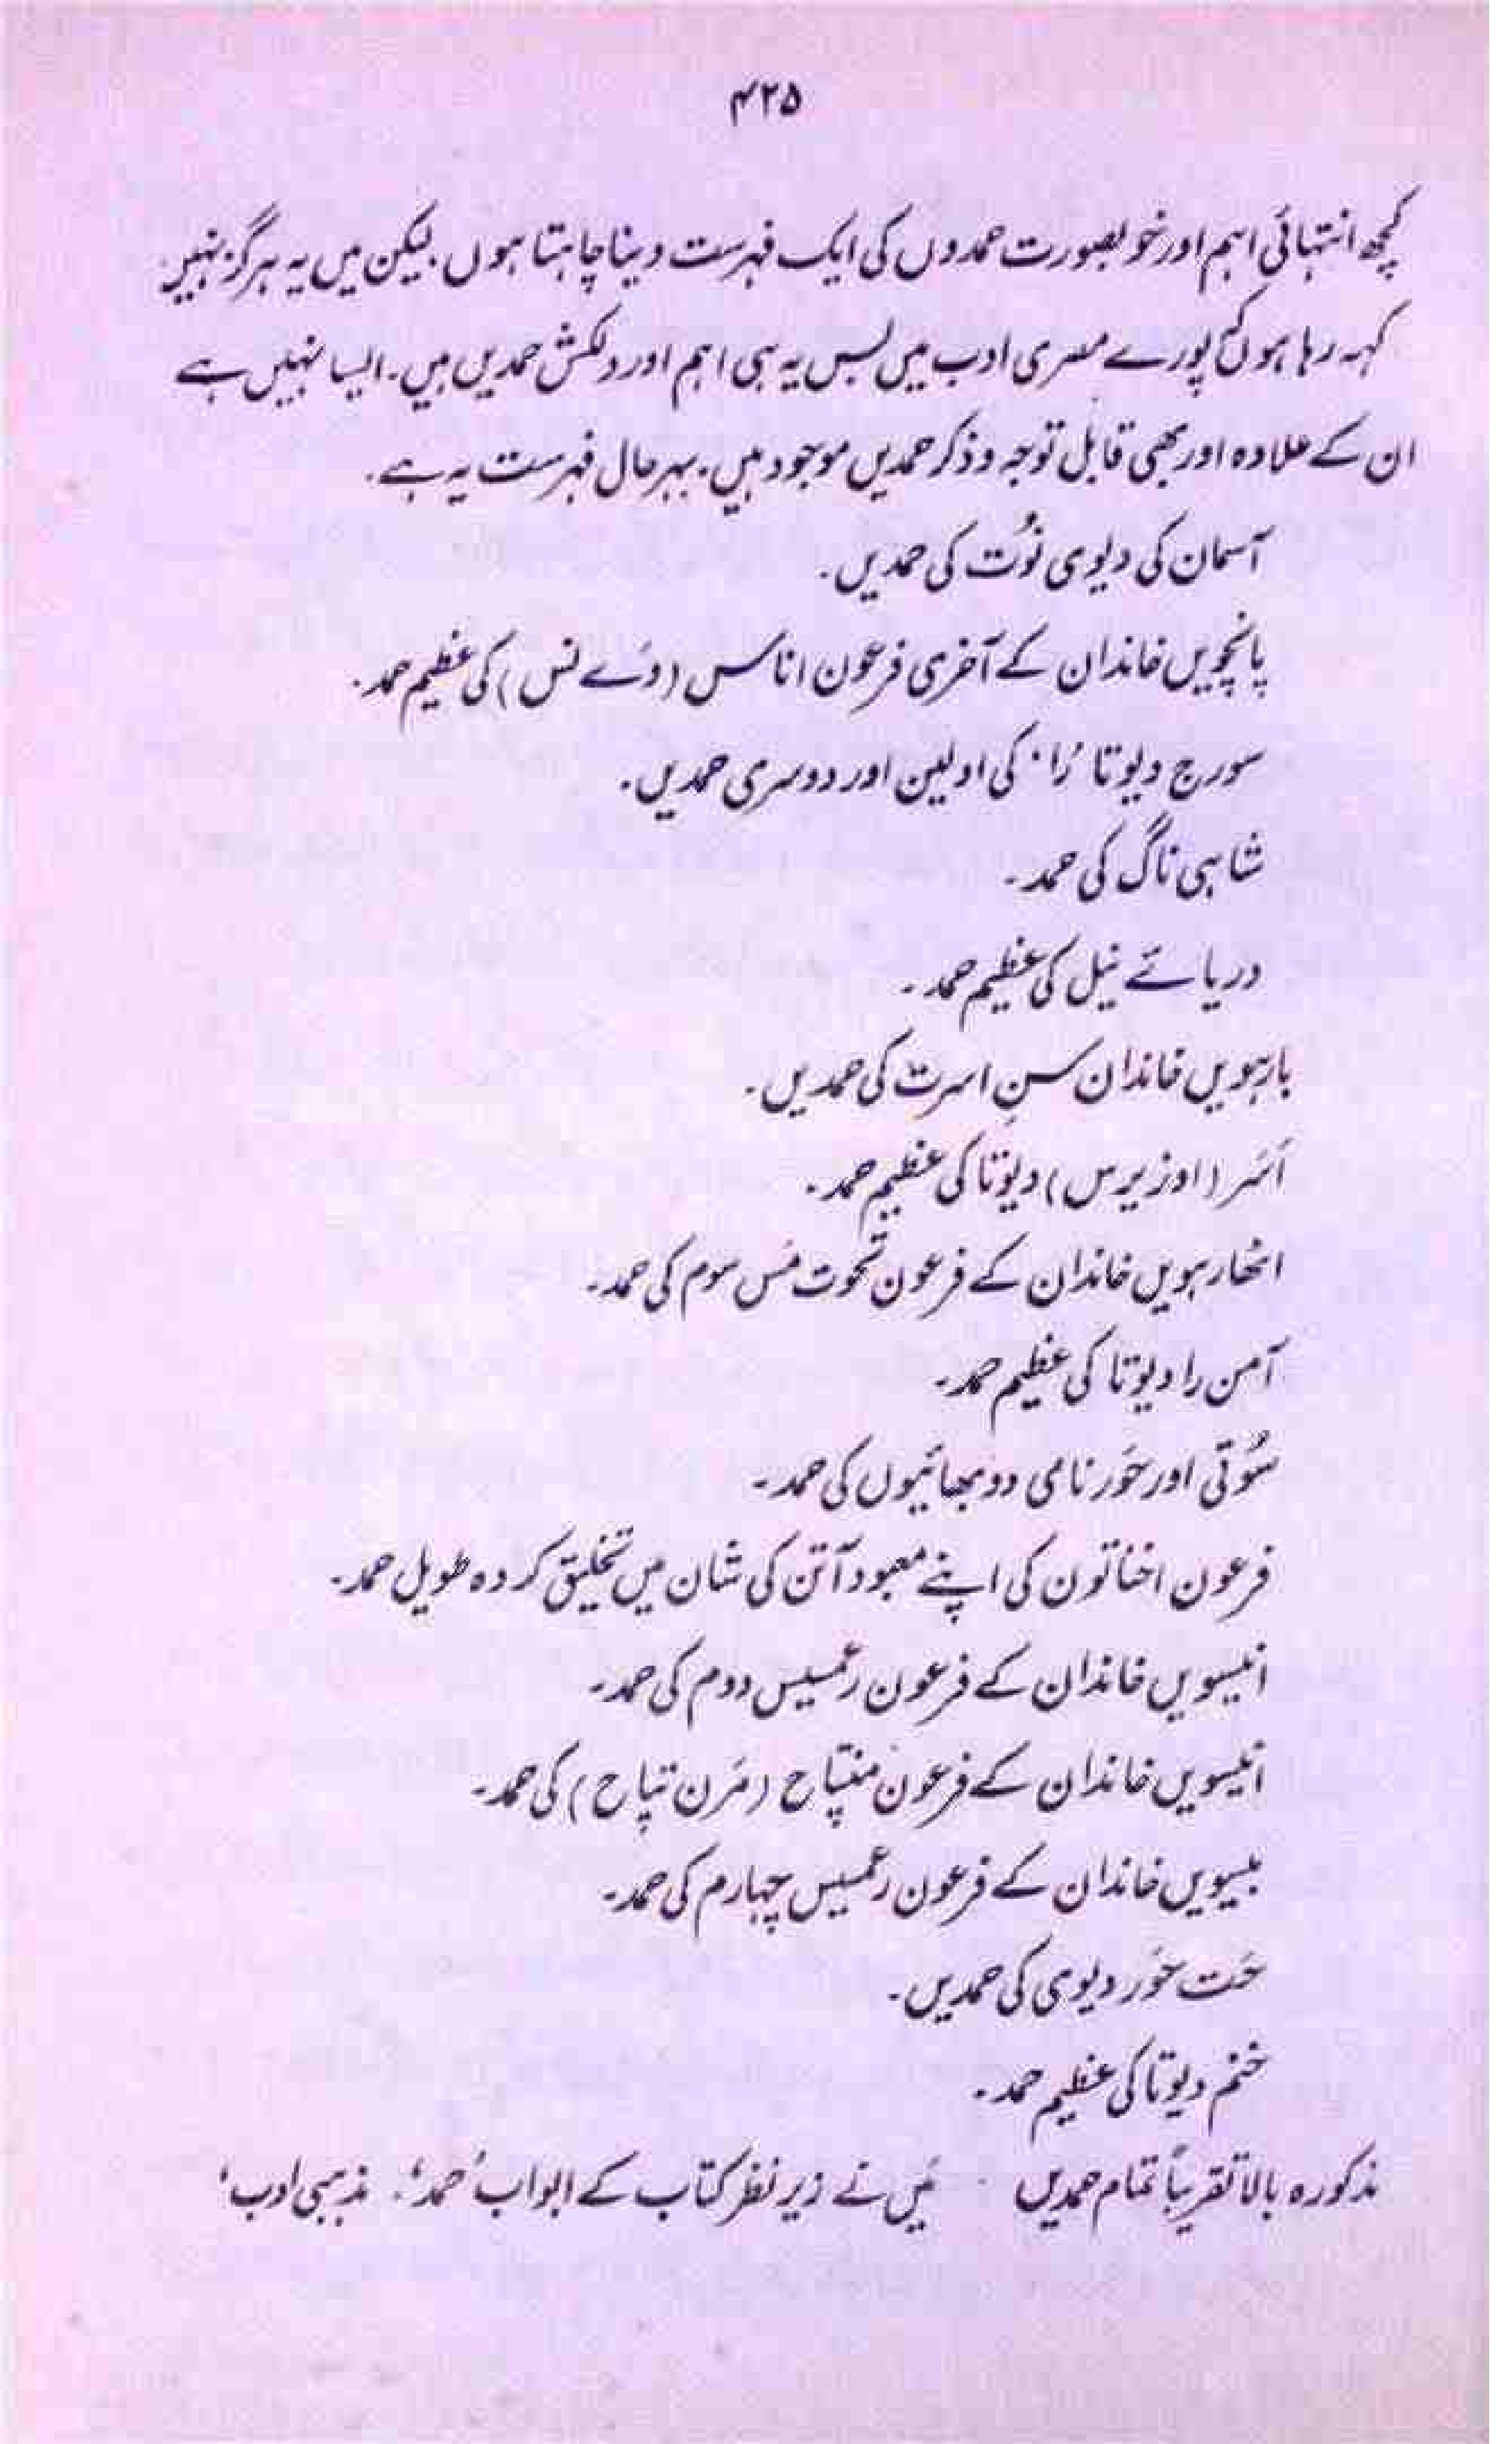 ۴۲۵
کچھ انتہائی اہم اور خوبصورت حمدوں کی ایک فہرست دینا چاہتا ہوں۔ لیکن میں یہ ہرگز نہیں
کہہ رہا ہوں کہ پورے مصری ادب میں بس یہ ہی اہم اور دلکش حمدیں ہیں۔ ایسا نہیں ہے
ان کے علاوہ اور بھی قابل توجہ و ذکر حمدیں موجود ہیں۔ بہر حال فہرست یہ ہے۔
آسمان کی دیوی نُوت کی حمدیں۔
پانچویں خاندان کے آخری فرعون اناس (وَے نس) کی عظیم حمد۔
سورج دیوتا 'را' کی اولین اور دوسری حمدیں۔
شاہی ناگ کی حمد۔
دریائے نیل کی عظیم حمد۔
بارہویں خاندان سنِ اسرت کی حمدیں۔
اَسَر (اوزیرس) دیوتا کی عظیم حمد۔
اٹھارہویں خاندان کے فرعون تحوت مَس سوم کی حمد۔
آمن را دیوتا کی عظیم حمد۔
سُوتی اور حَور نامی دو بھائیوں کی حمد۔
فرعون اخناتون کی اپنے معبود آتن کی شان میں تخلیق کردہ طویل حمد۔
انیسویں خاندان کے فرعون رعمسیس دوم کی حمد۔
انیسویں خاندان کے فرعون منپتاح (مَرن پتاح) کی حمد۔
بیسویں خاندان کے فرعون رعمسیس چہارم کی حمد۔
حَت حَور دیوی کی حمدیں۔
خنم دیوتا کی عظیم حمد۔
مذکورہ بالا تقریباً تمام حمدیں میں نے زیر نظر کتاب کے ابواب 'حمد'، مذہبی ادب'